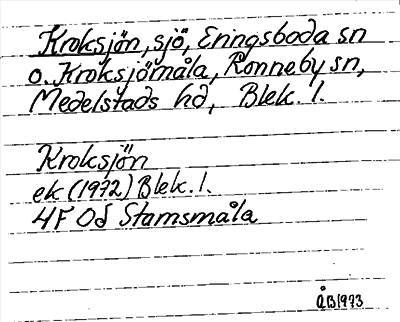 Kroksjön, sjö, Eringsboda sn
o. Kroksjömåla, Ronneby sn,
Medelstads hd, Blek. l.
Kroksjön
ek (1972) Blek. l.
4F 0d Stamsmåla
ÅB1973